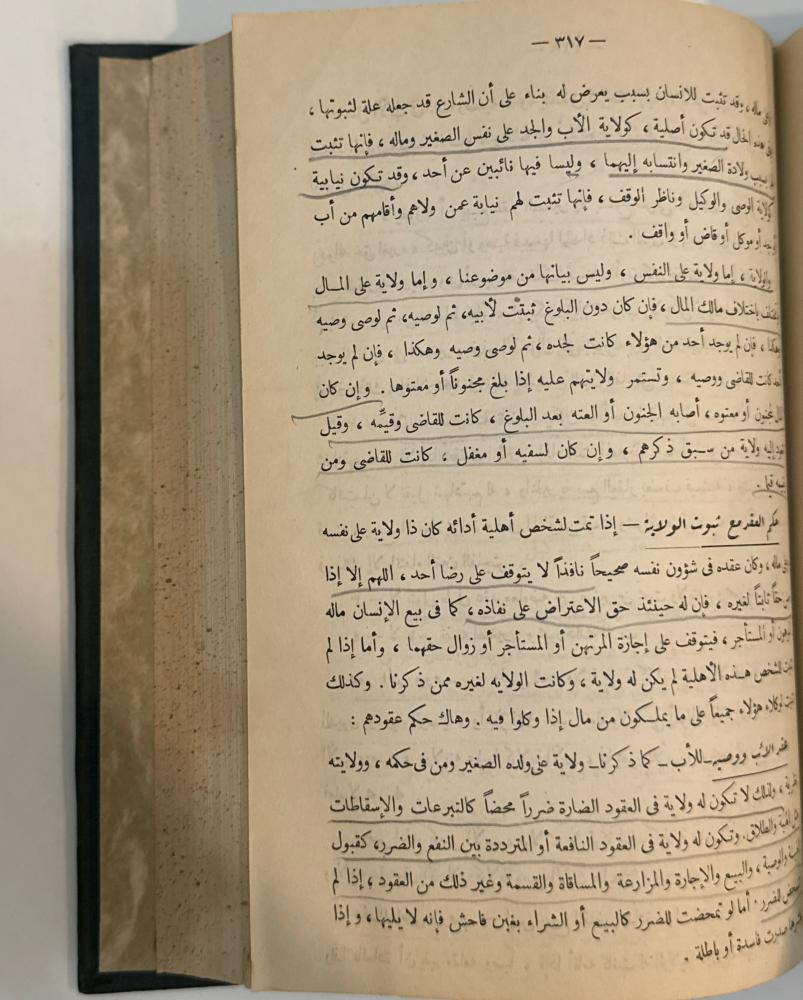 — ٣١٧ —
ماله ، وقد تثبت للانسان بسبب يعرض له بناء على أن الشارع قد جعله علة لثبوتها ،
الحال قد تكون أصلية ، كولاية الأب والجد على نفس الصغير وماله ، فإنها تثبت
ولادة الصغير وانتسابه إليهما ، وليسا فيها نائبين عن أحد ، وقد تكون نيابية
كولاية الوصى والوكيل وناظر الوقف ، فإنها تثبت لهم نيابة عمن ولاهم وأقامهم من أب
أو موكل أو قاض أو واقف .
والولاية ، إما ولاية على النفس ، وليس بيانها من موضوعنا ، وإما ولاية على المـال
باختلاف مالك المال ، فإن كان دون البلوغ ثبتت لأبيه، ثم لوصيه، ثم لوصى وصيه
وهكذا ، فإن لم يوجد أحد من هؤلاء كانت لجده ، ثم لوصى وصيه وهكذا ، فإن لم يوجد
كانت للقاضى ووصيه ، وتستمر ولايتهم عليه إذا بلغ مجنوناً أو معتوها . وإن كان
لمجنون أو معتوه ، أصابه الجنون أو العته بعد البلوغ ، كانت للقاضى وقيمه ، وقيل
إليه ولاية من سـبق ذكرهم ، وإن كان لسفيه أو مغفل ، كانت للقاضى ومن
قيما .
حكم العقد مع ثبوت الولاية — إذا تمت لشخص أهلية أدائه كان ذا ولاية على نفسه
ماله ، وكان عقده فى شؤون نفسه صحيحاً نافذاً لا يتوقف على رضا أحد ، اللهم إلا إذا
حقاً ثابتاً لغيره ، فإن له حينئذ حق الاعتراض على نفاذه ، كما فى بيع الإنسان ماله
المرهون أو المستأجر ، فيتوقف على إجازة المرتهن أو المستأجر أو زوال حقهما ، وأما إذا لم
لشخص هـذه الأهلية لم يكن له ولاية ، وكانت الولايه لغيره ممن ذكرنا . وكذلك
لوكلاء هؤلاء جميعاً على ما يملـكون من مال إذا وكلوا فيه . وهاك حكم عقودهم :
عقد الأب ووصيه ـ للأب ـ كما ذكرنا ـ ولاية على ولده الصغير ومن فى حكمه ، وولايته
ولذلك لا تـكون له ولاية فى العقود الضارة ضرراً محضاً كالتبرعات والإسقاطات
والطلاق. وتكون له ولاية فى العقود النافعة أو المترددة بين النفع والضرر، كقبول
والوصية ، والبيع والإجارة والمزارعة والمساقاة والقسمة وغير ذلك من العقود ، إذا لم
للضرر . أما لو تمحضت للضرر كالبيع أو الشراء بغبن فاحش فإنه لا يليها، وإذا
صدرت فاسدة أو باطلة .